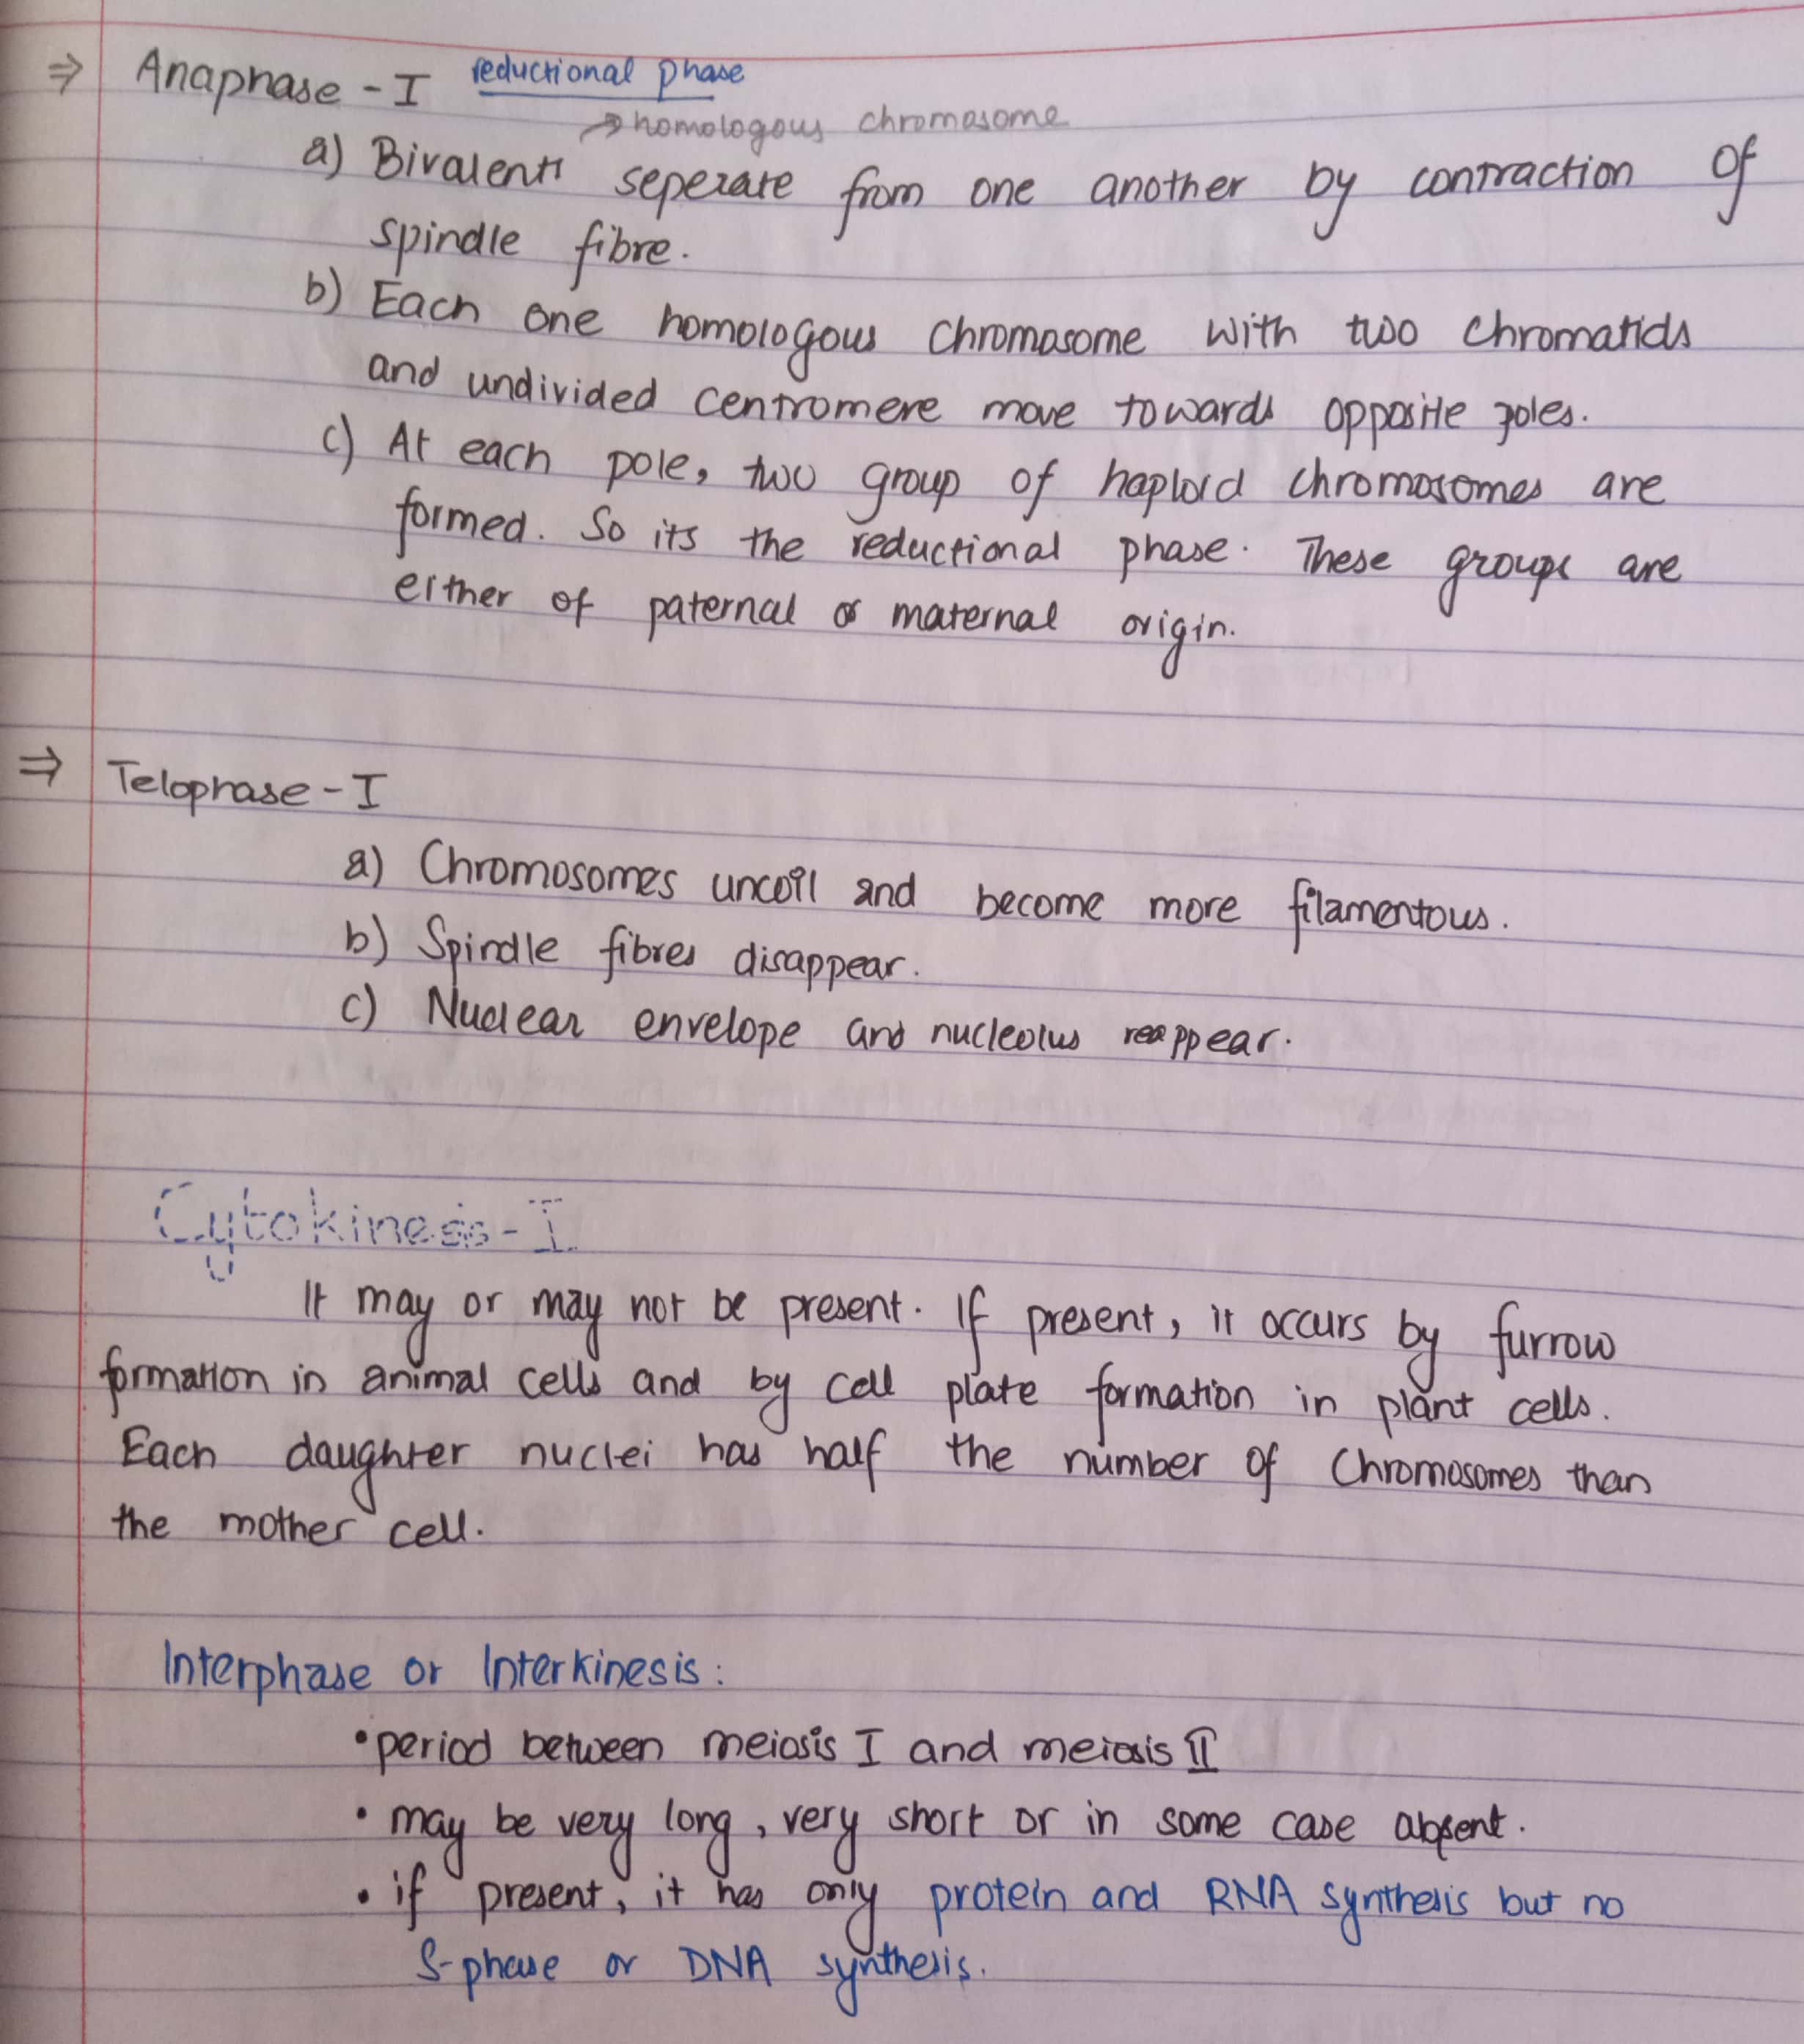 ⇒ Anaphase - I reductional phase
→ homologous chromosome
a) Bivalents seperate from one another by contraction of
spindle fibre.
b) Each one homologous chromosome with two chromatids
and undivided centromere move towards opposite poles.
c) At each pole, two group of haploid chromosomes are
formed. So its the reductional phase. These groups are
either of paternal or maternal origin.
⇒ Telophase - I
a) Chromosomes uncoil and become more filamentous.
b) Spindle fibres disappear.
c) Nuclear envelope and nucleolus reappear.
Cytokinesis - I
It may or may not be present. If present, it occurs by furrow
formation in animal cells and by cell plate formation in plant cells.
Each daughter nuclei has half the number of chromosomes than
the mother cell.
Interphase or Interkinesis:
• period between meiosis I and meiosis II
• may be very long, very short or in some case absent.
• if present, it has only protein and RNA synthesis but no
S-phase or DNA synthesis.